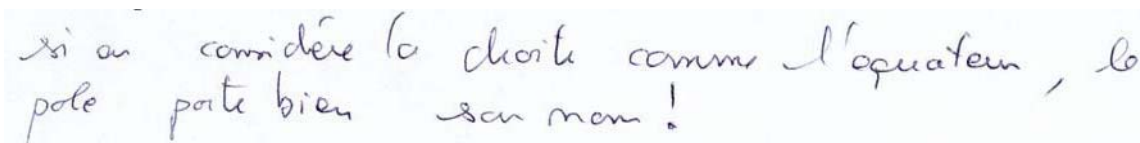 si on considère la droite comme l'équateur, le
pole porte bien son nom!